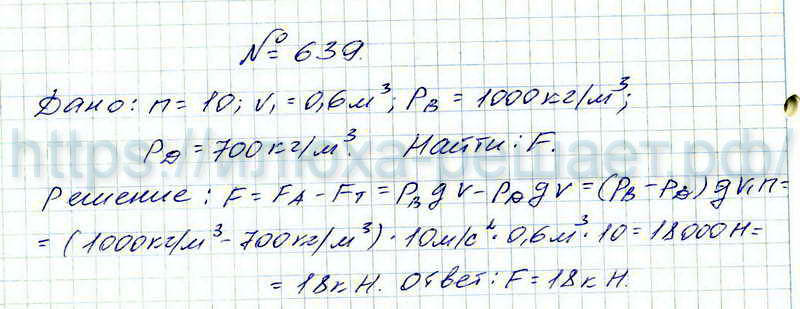 № 639.
Дано: n = 10; V₁ = 0,6 м³; ρ_В = 1000 кг/м³;
ρ_Д = 700 кг/м³. Найти: F.
Решение: F = F_A - F_T = ρ_В g V - ρ_Д g V = (ρ_В - ρ_Д) g V₁ n =
= (1000 кг/м³ - 700 кг/м³) · 10 м/с² · 0,6 м³ · 10 = 18000 Н =
= 18 кН. Ответ: F = 18 кН.